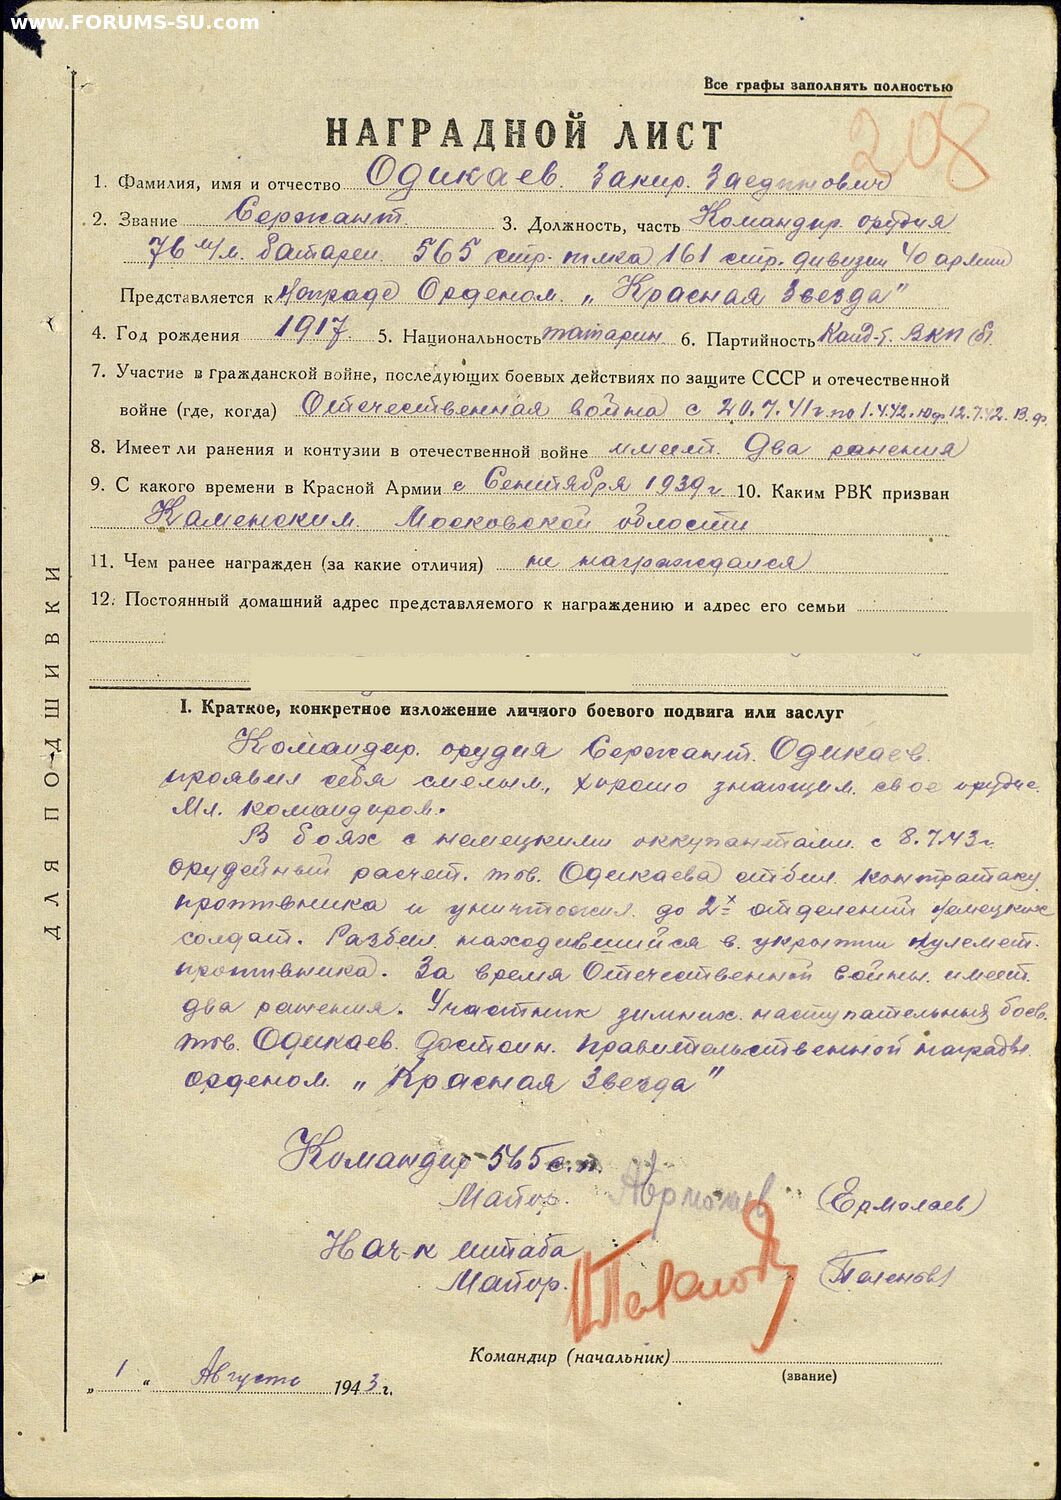 www.FORUMS-SU.com
Все графы заполнять полностью
НАГРАДНОЙ ЛИСТ
208
1. Фамилия, имя и отчество Одикаев Закир Заединович
2. Звание Сержант 3. Должность, часть Командир орудия
76 м/м. батареи 565 стр. полка 161 стр. дивизии 40 армии
Представляется к награде Орденом „Красная Звезда"
4. Год рождения 1917 5. Национальность татарин 6. Партийность Канд-т. ВКП(б)
7. Участие в гражданской войне, последующих боевых действиях по защите СССР и отечественной
войне (где, когда) Отечественная война с 20.7.41г. по 1.4.42. Ю.ф 12.7.42. В. ф.
8. Имеет ли ранения и контузии в отечественной войне имеет. Два ранения
9. С какого времени в Красной Армии с Сентября 1939г 10. Каким РВК призван
Каменским Московской области
11. Чем ранее награжден (за какие отличия) не награждался
12. Постоянный домашний адрес представляемого к награждению и адрес его семьи
ДЛЯ ПОДШИВКИ
I. Краткое, конкретное изложение личного боевого подвига или заслуг
Командир орудия Сержант Одикаев
проявил себя смелым, хорошо знающим свое орудие
Мл. командиром.
В боях с немецкими оккупантами с 8.7.43г.
орудейный расчет тов. Одикаева отбил контратаку
противника и уничтожил до 2х отделений немецких
солдат. Разбил находившийся в укрытии пулемет
противника. За время Отечественной войны имеет
два ранения. Участник зимних наступательных боев.
тов. Одикаев достоин правительственной награды
орденом „Красная Звезда"
Командир 565 с.п.
Майор. (Ермолаев)
Нач-к штаба
Майор.
Командир (начальник)
(звание)
„1" Августа 1943 г.